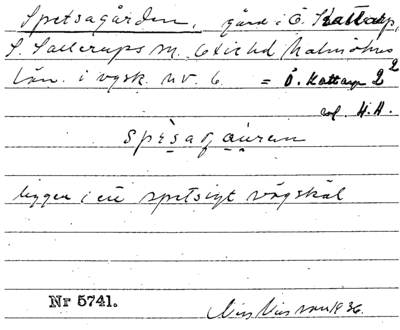 Spetsagården, gård i Ö. Kattarp,
S. Sallerups sn. Oxie hd Malmöhus
län. i vgsk. nv. 6. = Ö. Kattarp 2²
enl. H.A.
spèsagáuren
ligger i ett spetsigt vägskäl
Nr 5741.
1936.